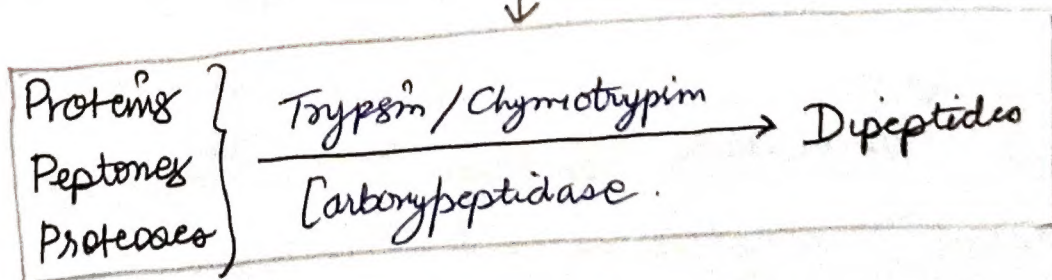 Proteins
Peptones
Proteoses
Trypsin / Chymotrypsin
Carboxypeptidase.
Dipeptides